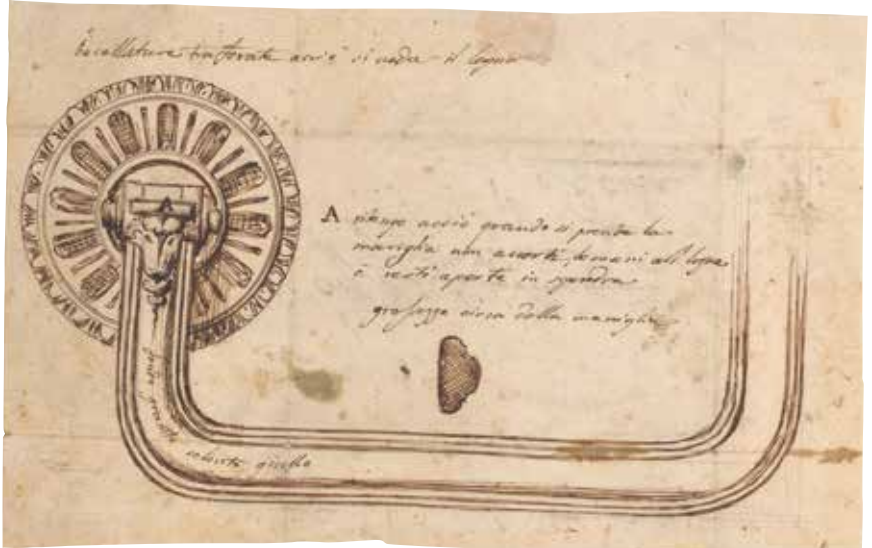 baccellature traforate acciò si veda il legno
A ritegno acciò quando si prende la
maniglia non accosti le mani al legno
e resti aperta in squadra
grossezza circa della maniglia
questo